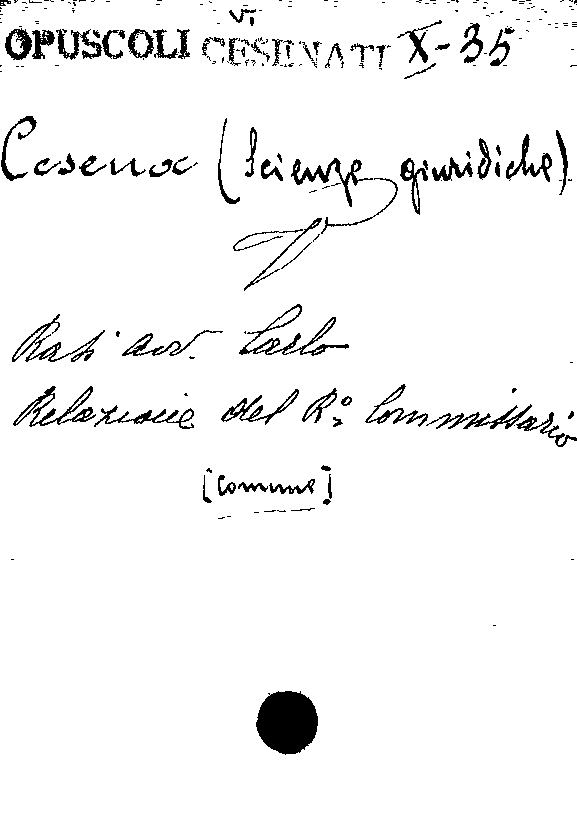 VI
OPUSCOLI CESENATI X-35
Cesena (Scienze giuridiche)
Rasi avv. Carlo
Relazione del R.º Commissario
[Comune]